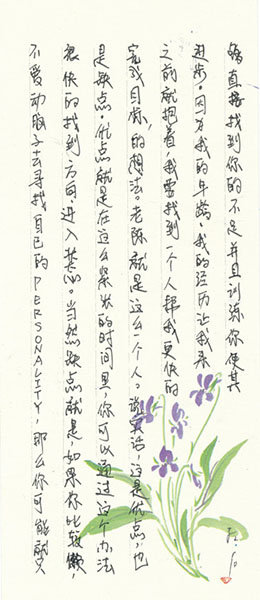 够直接找到你的不足并且训练你使其
进步。因为我的年龄，我的经历让我来
之前就抱着，我要找到一个人帮我更快的
完成目标，的想法。老陈就是这么一个人。说实话，这是优点，也
是缺点。优点就是在这么紧张的时间里，你可以通过这个办法
很快的找到方向，进入状态。当然缺点就是，如果你比较懒，
不爱动脑子去寻找自己的PERSONALITY，那么你可能就只